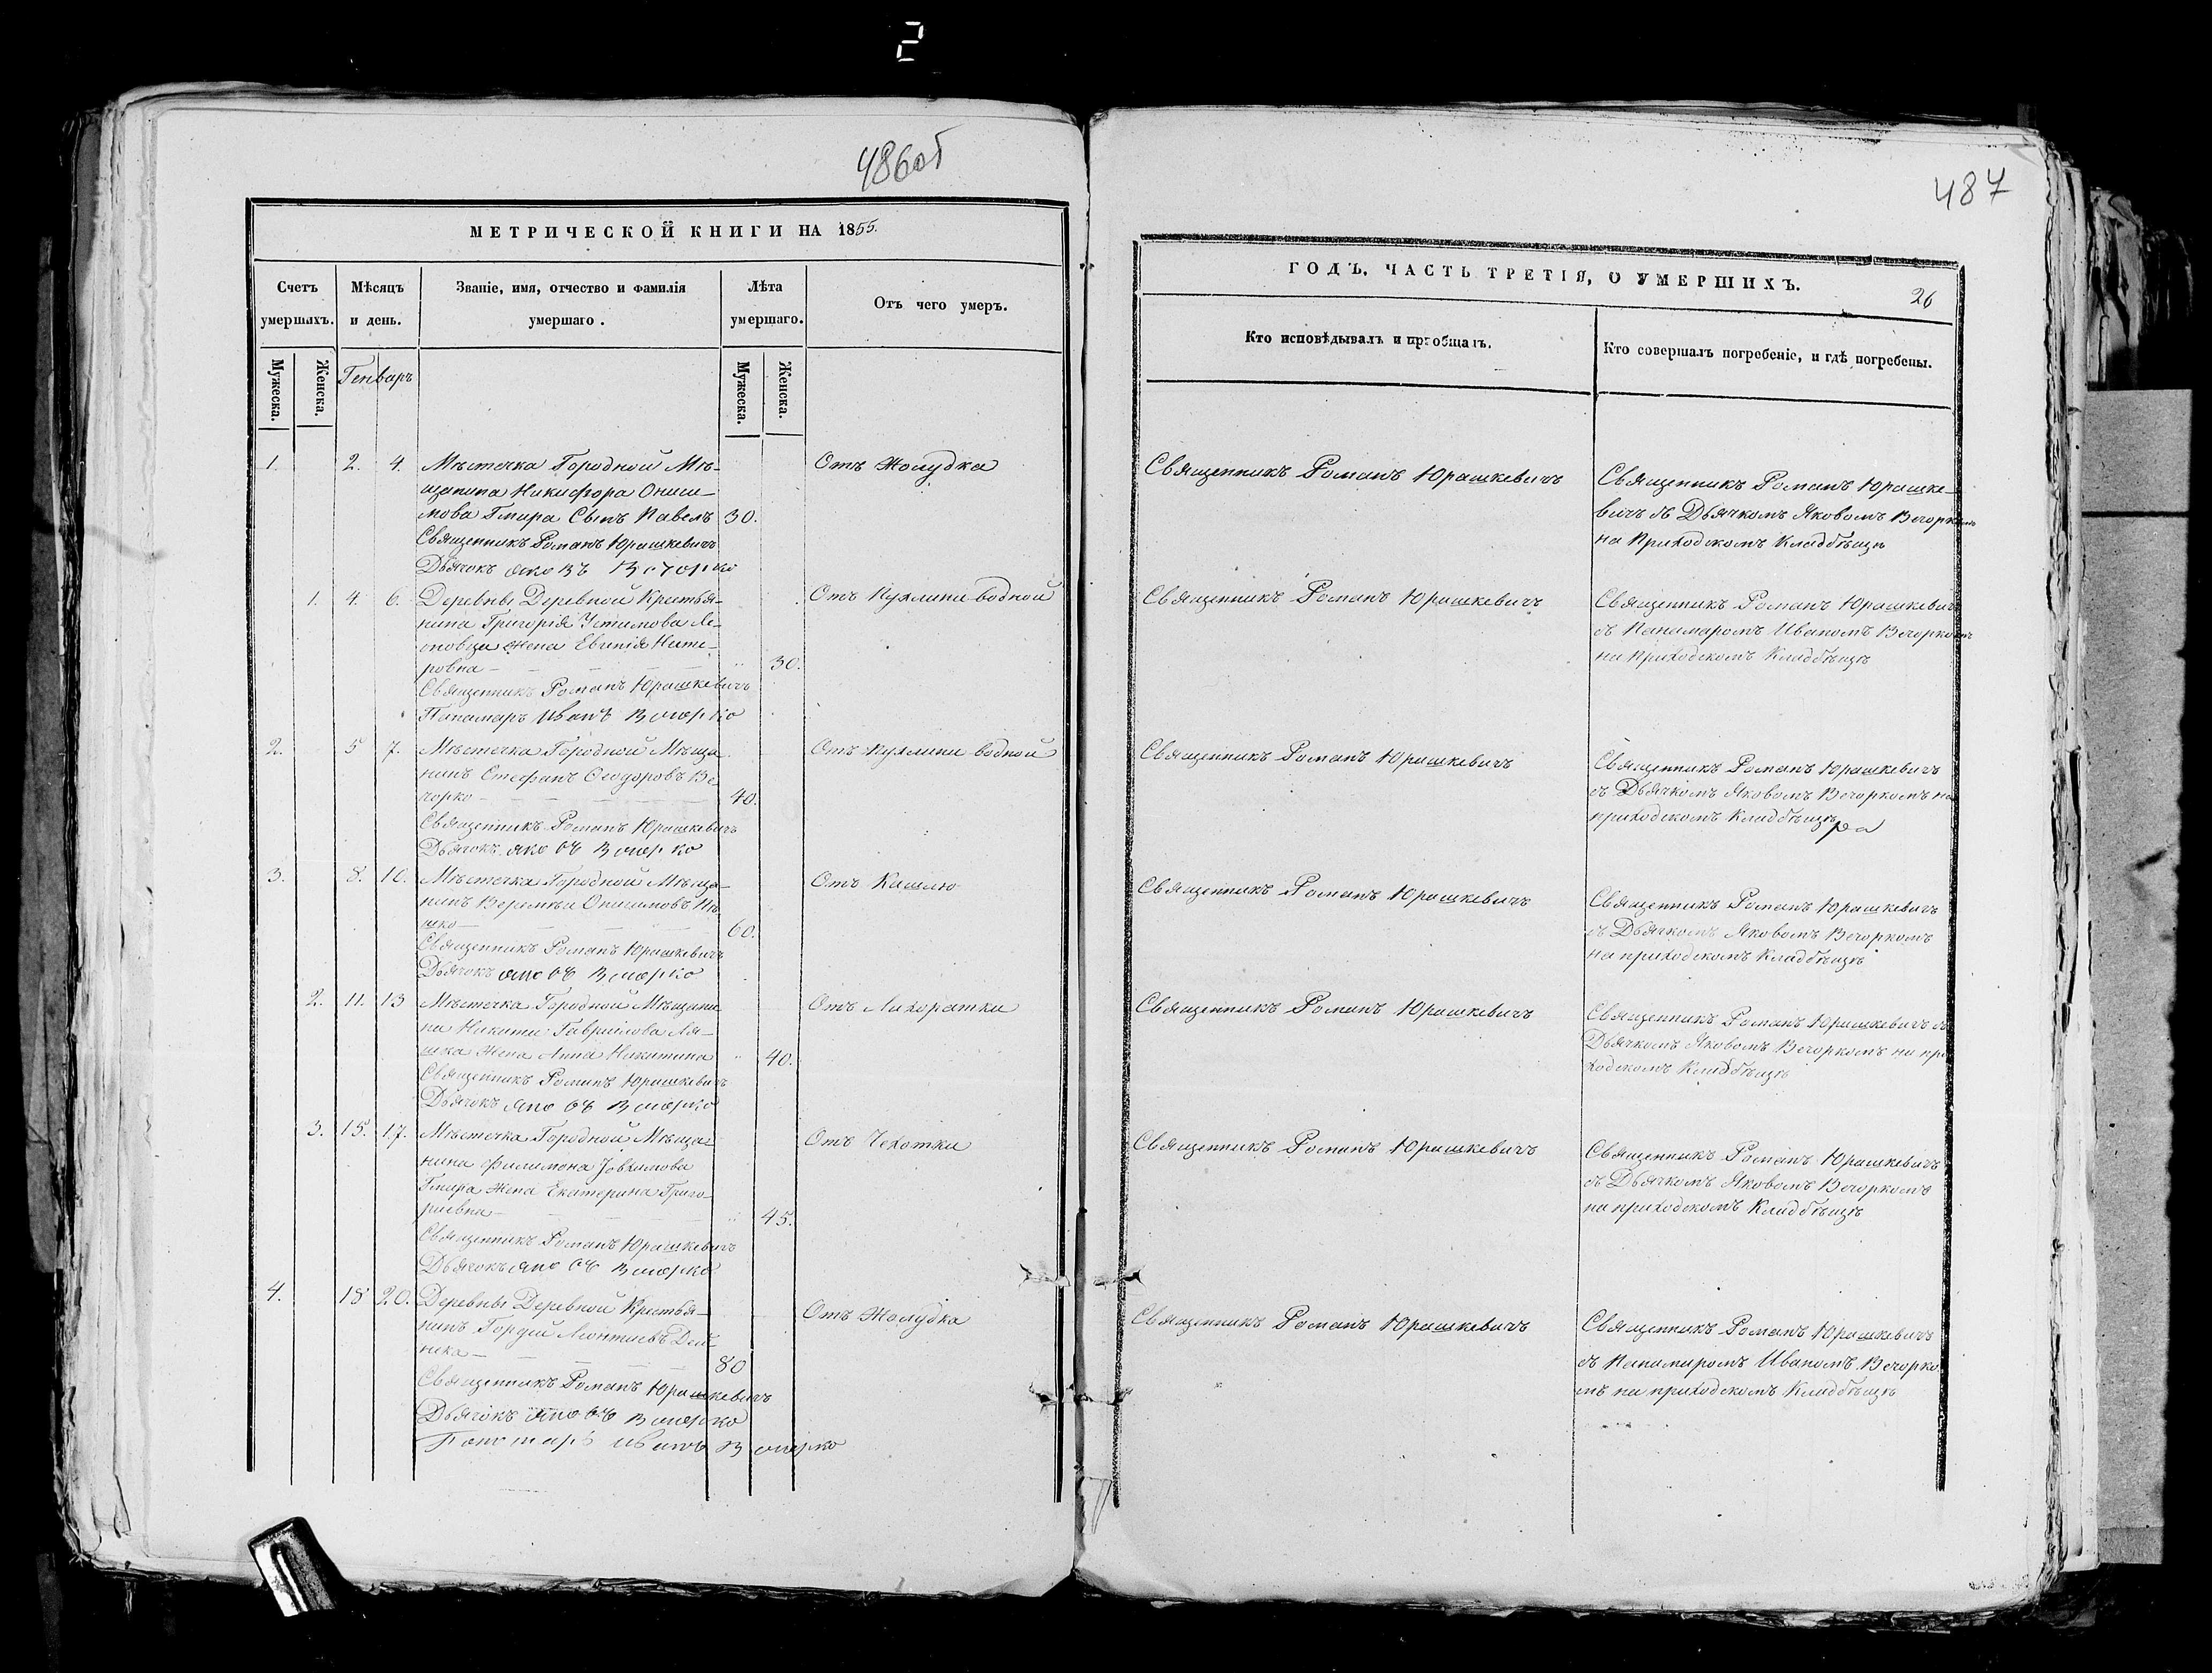 2
486об
МЕТРИЧЕСКОЙ КНИГИ НА 1855.
Счетъ умершихъ.
Мѣсяцъ и день.
Званіе, имя, отчество и фамилія умершаго.
Лѣта умершаго.
Отъ чего умеръ.
Мужеска.
Женска.
Генваръ
Мужеска.
Женска.
1. 2. 4. Мѣстечка Городной Мѣ- Отъ Жолудка
щанина Никифора Ониси-
мова Гмира Сынъ Павелъ 30.
Священникъ Романъ Юрашкевичъ
Дьячокъ Яковъ Вечорко
1. 4. 6. Деревны Деревной Крестья- Отъ Пухлини водной
нина Григорія Устимова
жена Евгенія
ровна 30.
Священникъ Романъ Юрашкевичъ
Панамаръ Иванъ Вечорко
2. 5 7. Мѣстечка Городной Мѣща Отъ Пухлини водной
нинъ Стефанъ Ѳеодоровъ Ве-
чорко 40.
Священникъ Романъ Юрашкевичъ
Дьячокъ Яковъ Вечорко
3. 8. 10. Мѣстечка Городной Мѣща- Отъ Кашлю
нинъ
60.
Священникъ Романъ Юрашкевичъ
Дьячокъ Яковъ Вечорко
2. 11. 13 Мѣстечка Городной Мѣщани Отъ Лихоратки
на Никити Гавриилова Ля-
шка Жена Анна Никитина 40.
Священникъ Романъ Юрашкевичъ
Дьячокъ Яковъ Вечорко
3. 15. 17. Мѣстечка Городной Мѣща- Отъ Чехотки
нина Филимона Іовхимова
Гмира Жена Екатерина Григо-
риевна 45.
Священникъ Романъ Юрашкевичъ
Дьячокъ Яковъ Вечорко
4. 18 20. Деревны Деревной Крестья- Отъ Жолудка
нинъ Гордій Леонтиевъ
80
Священникъ Романъ Юрашкевичъ
Дьячокъ Яковъ Вечорко
Панамаръ Иванъ Вечорко
487
ГОДЪ, ЧАСТЬ ТРЕТІЯ, О УМЕРШИХЪ.
26
Кто исповѣдывалъ и пріобщалъ.
Кто совершалъ погребеніе, и гдѣ погребены.
Священникъ Романъ Юрашкевичъ
Священникъ Романъ Юрашке-
вичъ съ Дьячкомъ Яковомъ Вечоркомъ
на Приходскомъ Кладбѣщѣ
Священникъ Романъ Юрашкевичъ
Священникъ Романъ Юрашкевичъ
съ Панамаромъ Иваномъ Вечоркомъ
на Приходскомъ Кладбѣщѣ
Священникъ Романъ Юрашкевичъ
Священникъ Романъ Юрашкевичъ
съ Дьячкомъ Яковомъ Вечоркомъ на
приходскомъ Кладбѣщѣ
Священникъ Романъ Юрашкевичъ
Священникъ Романъ Юрашкевичъ
съ Дьячкомъ Яковомъ Вечоркомъ
на приходскомъ Кладбѣщѣ
Священникъ Романъ Юрашкевичъ
Священникъ Романъ Юрашкевичъ съ
Дьячкомъ Яковомъ Вечоркомъ на при
ходскомъ Кладбѣщѣ
Священникъ Романъ Юрашкевичъ
Священникъ Романъ Юрашкевичъ
съ Дьячкомъ Яковомъ Вечоркомъ
на приходскомъ Кладбѣщѣ
Священникъ Романъ Юрашкевичъ
Священникъ Романъ Юрашкевичъ
съ Панамаромъ Иваномъ Вечорко
мъ на приходскомъ Кладбѣщѣ